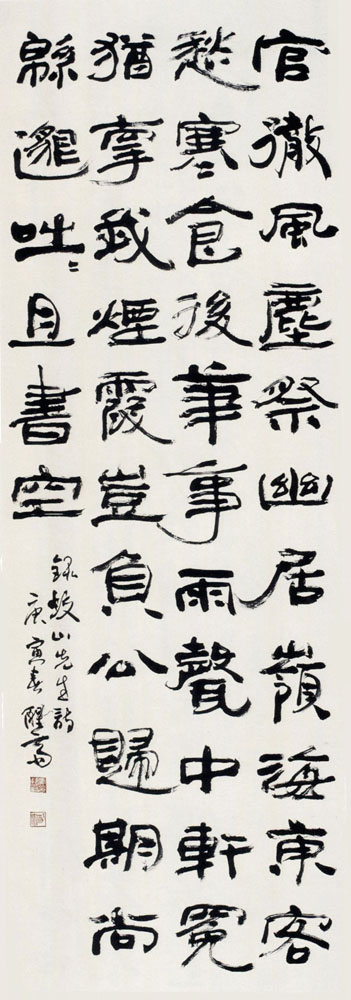 官徹風塵祭幽居嶺海東客
愁寒食後華事雨聲中軒冕
猶辜我煙霞豈負公歸期尚
緜邈咄咄且書空
錄鼓山先生詩
庚寅春醒斋